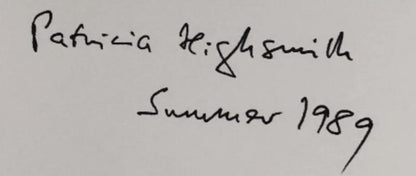 Patricia Highsmith
Summer 1989